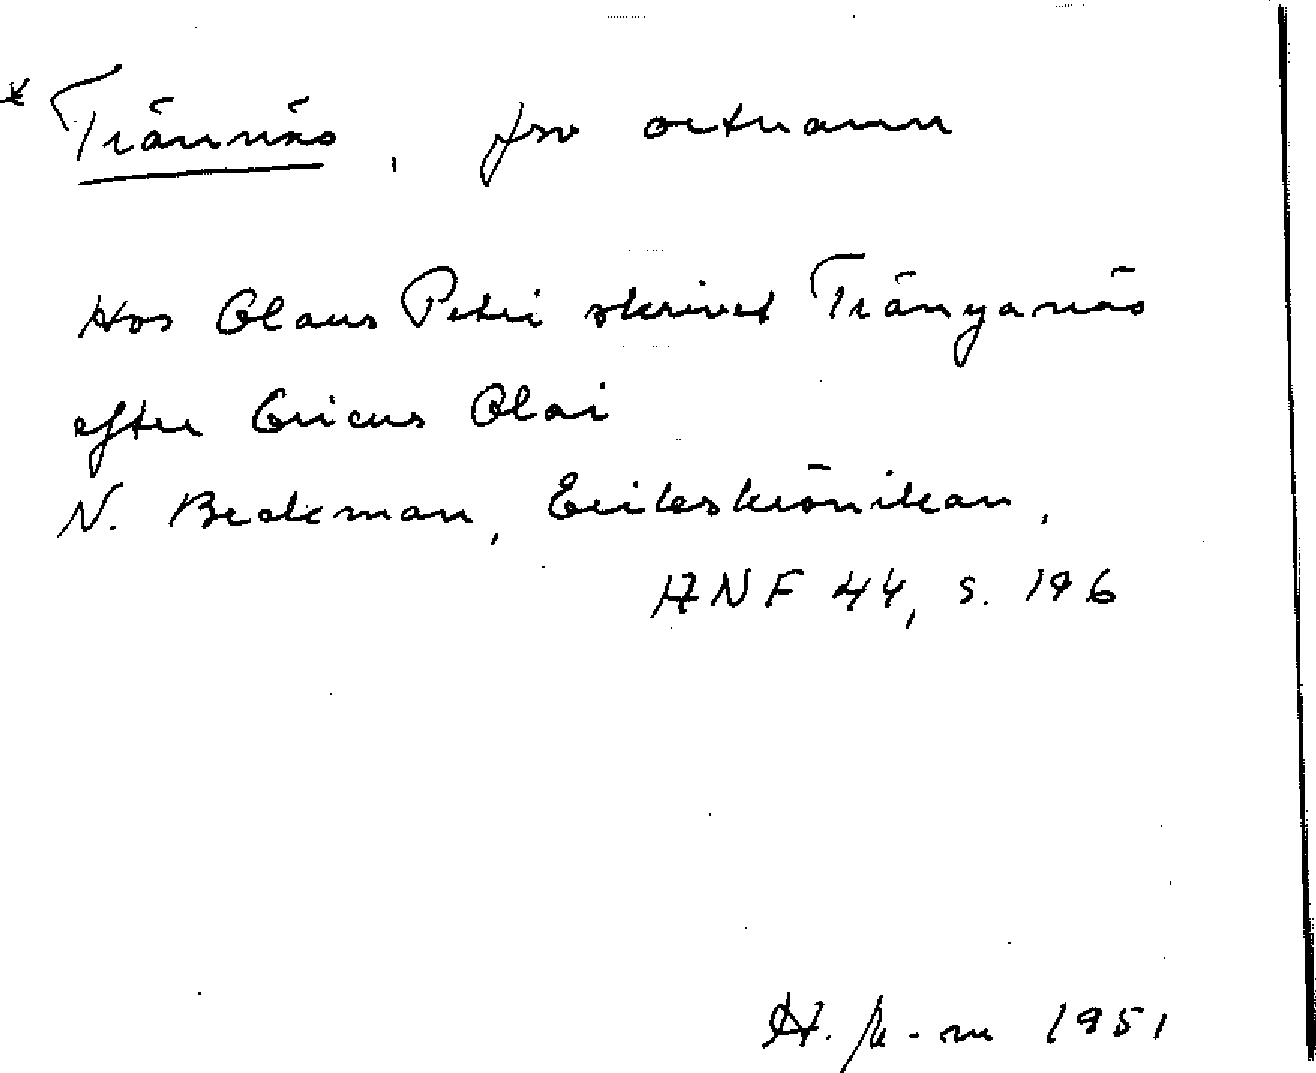 * Trännäs, fsv ortnamn
Hos Olaus Petri skrivet Tränganäs
efter Ericus Olai
N. Beckman, Erikskrönikan,
ANF 44, s. 196
1951